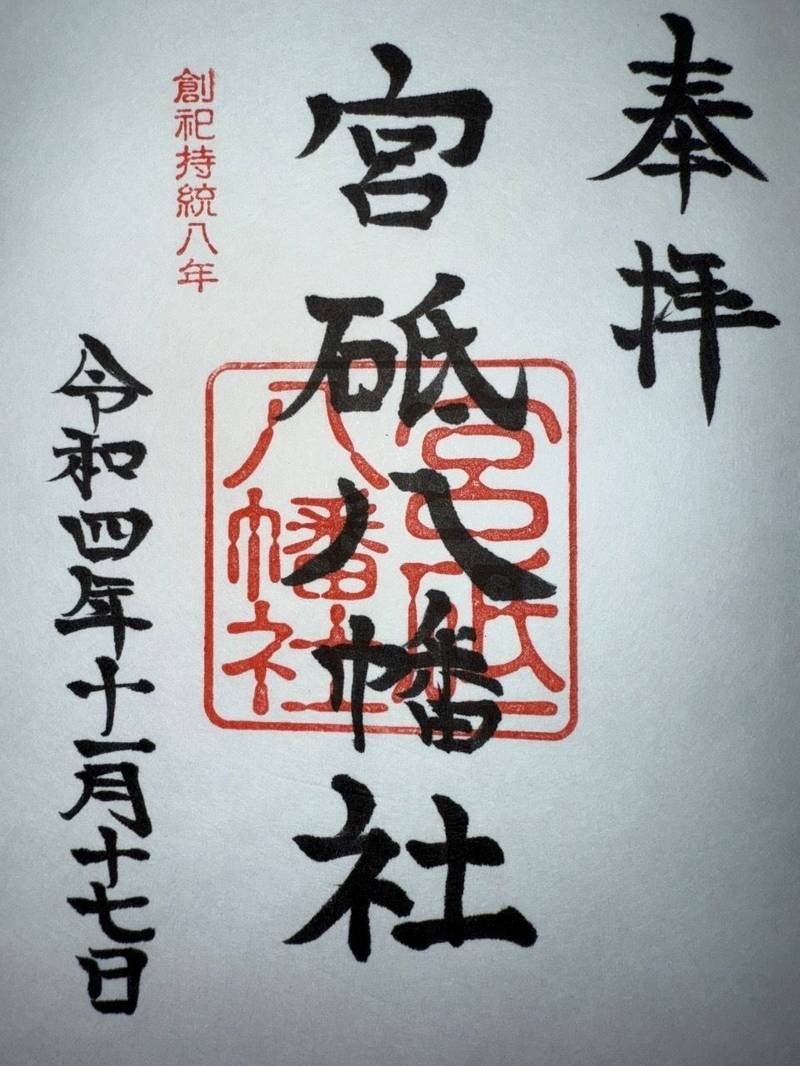 奉拝
宮砥八幡社
宮砥
八幡社
創祀持統八年
令和四年十一月十七日